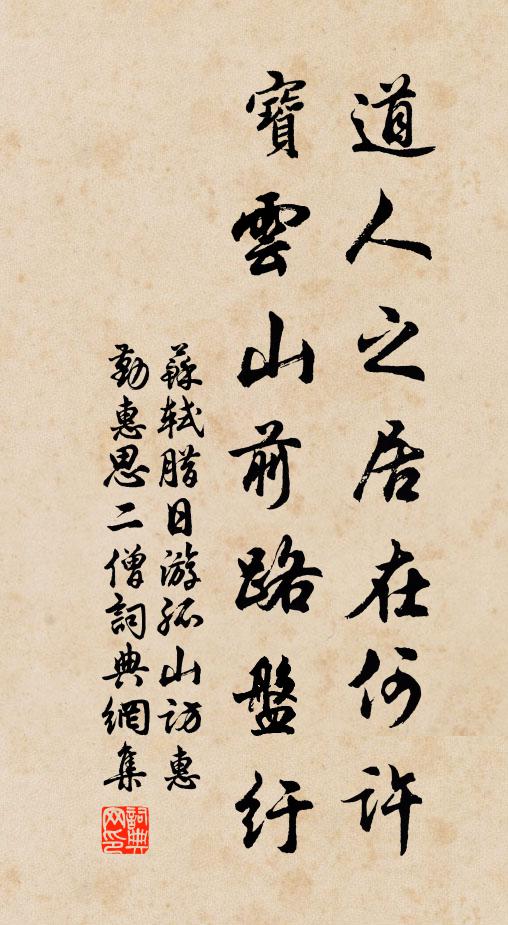 道人之居在何許
寶雲山前路盤紆
蘇軾腊日游孤山訪惠
勤惠思二僧詞典網集
詞典网印